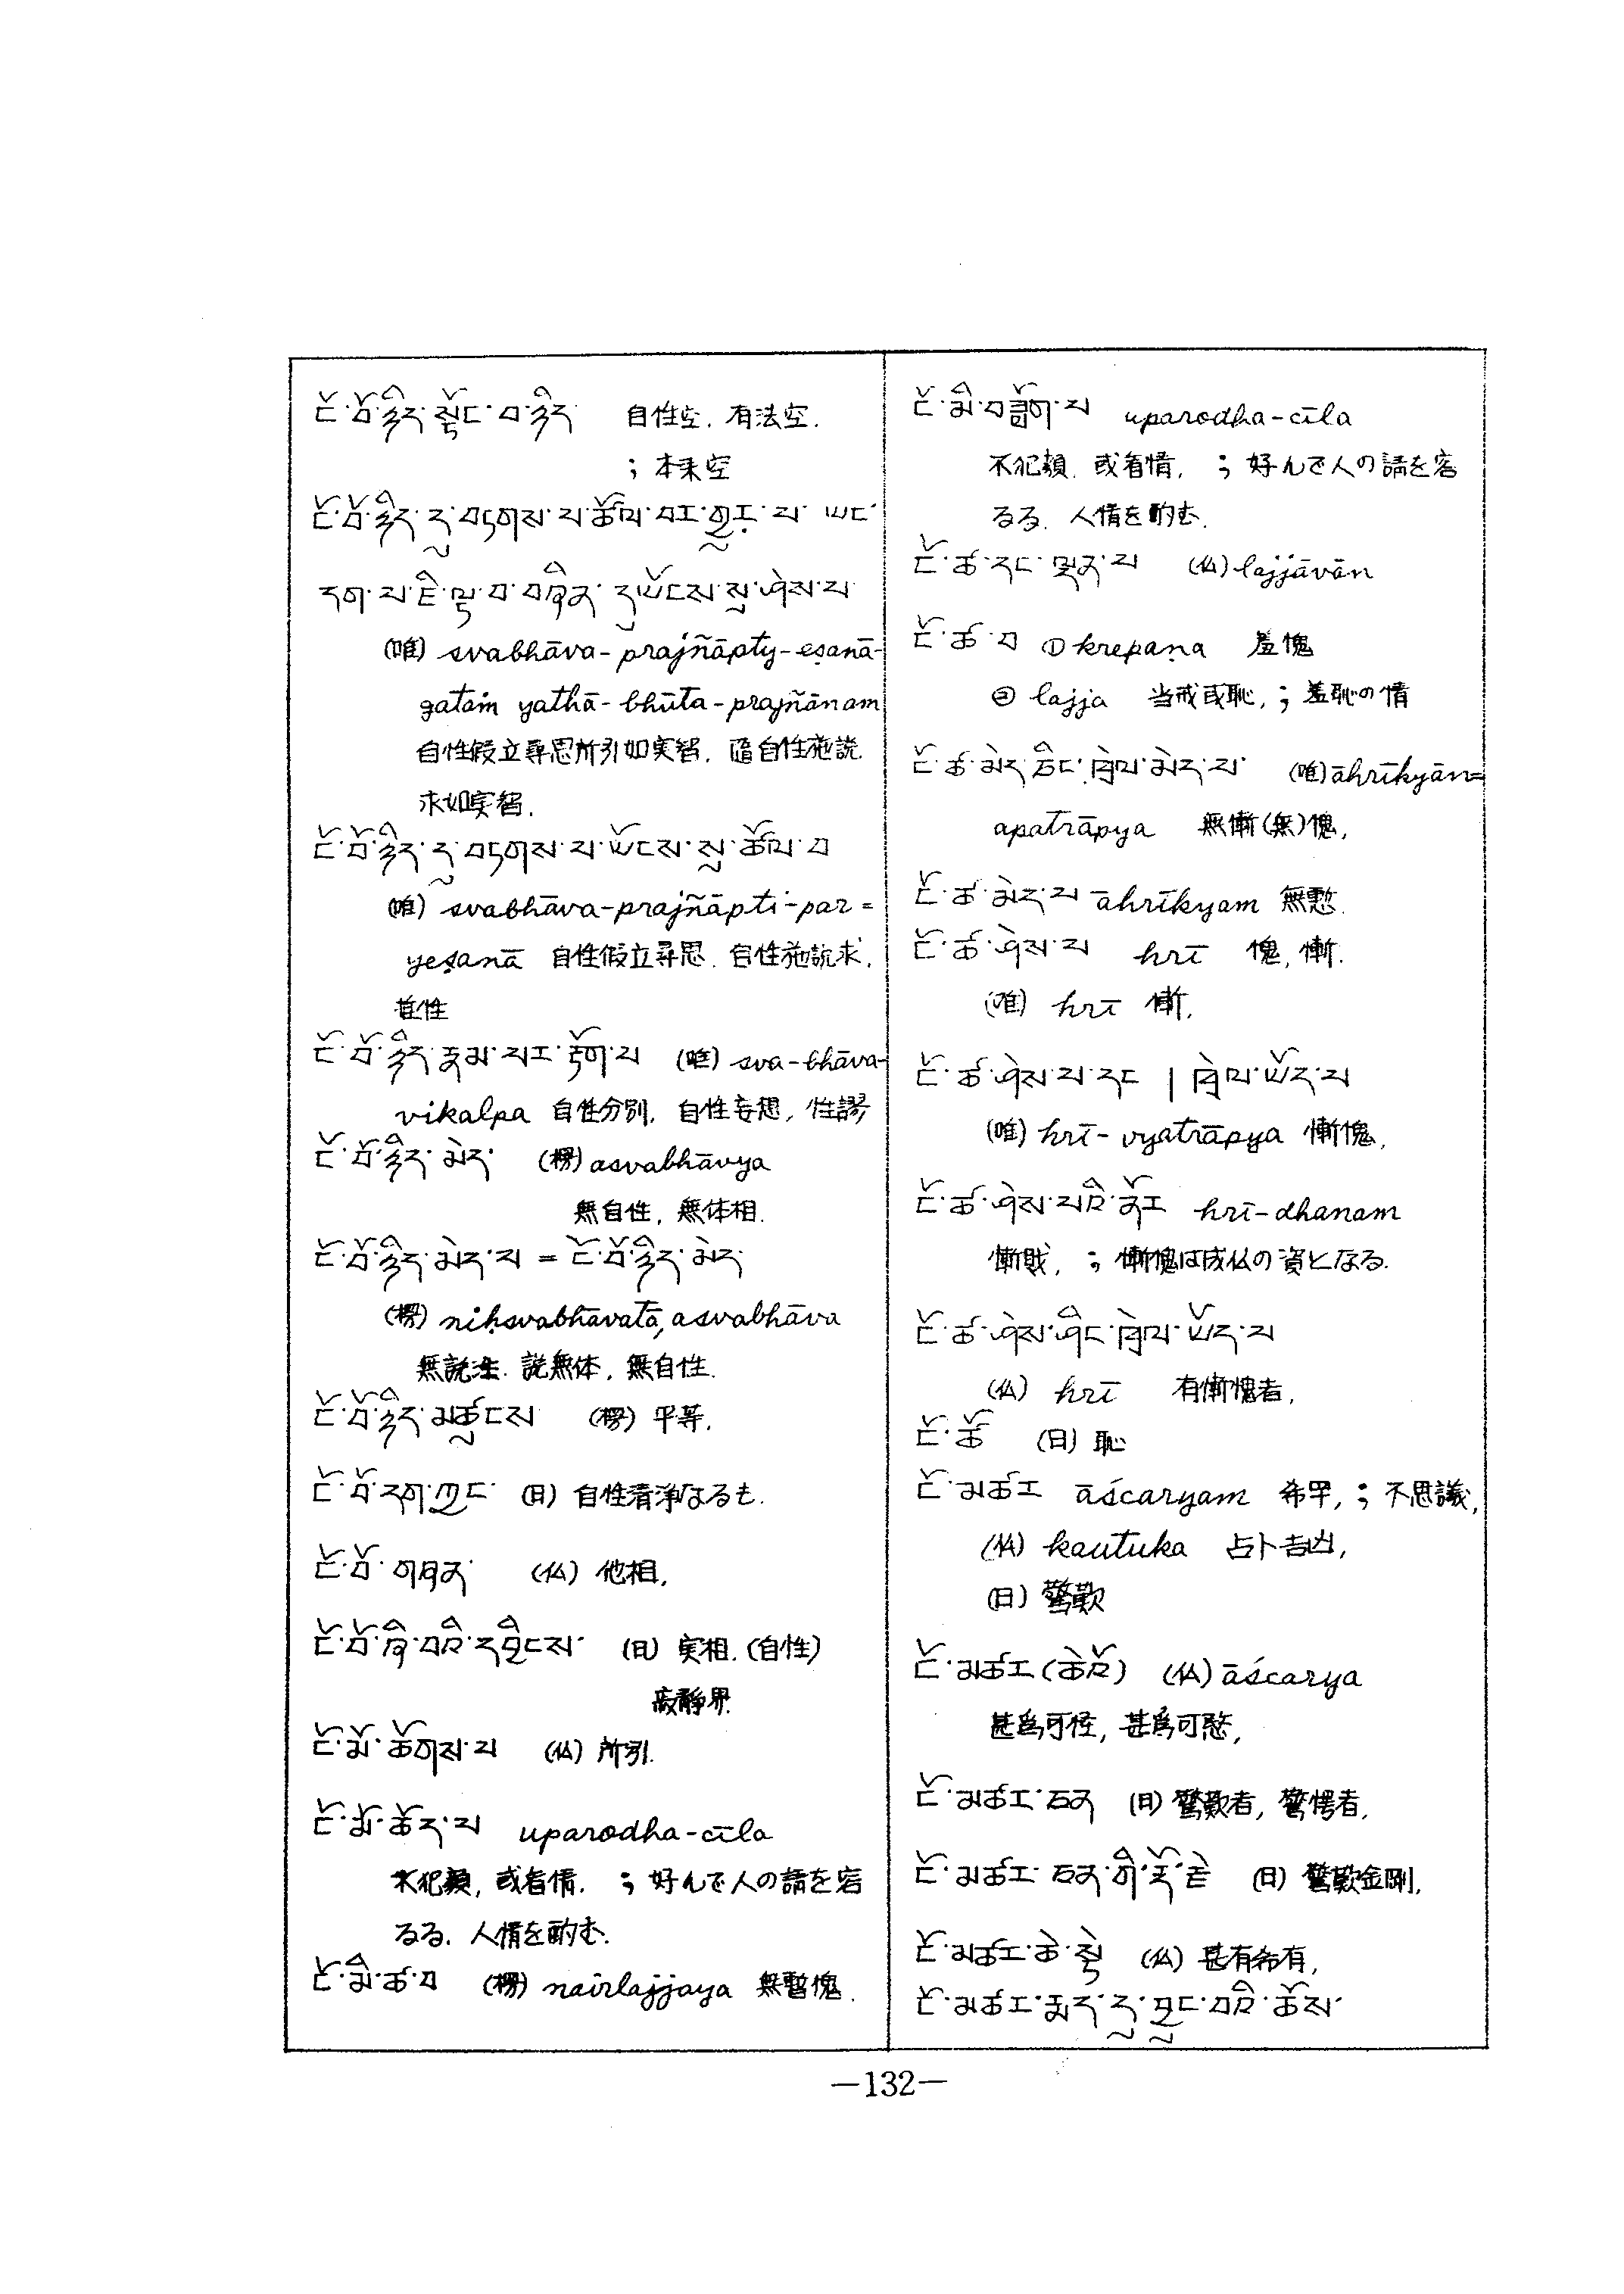 ངོ་བོ་ཉིད་སྟོང་པ་ཉིད 自性空. 有法空.
; 本来空
ངོ་བོ་ཉིད་དུ་བཏགས་པ་ཚོལ་བར་གྱུར་པ་ཡང་
དག་པ་ཇི་ལྟ་བ་བཞིན་དུ་ཡོངས་སུ་ཤེས་པ
(唯) svabhāva-prajñāpty-eṣanā-
gataṁ yathā-bhūta-prajñānam
自性仮立尋思所引如実智. 随自性施説.
求如実智.
ངོ་བོ་ཉིད་དུ་བཏགས་པ་ཡོངས་སུ་ཚོལ་བ
(唯) svabhāva-prajñāpti-par=
yeṣanā 自性仮立尋思. 自性施説求.
性
ངོ་བོ་ཉིད་རྣམ་པར་རྟོག་པ (唯) sva-bhāva-
vikalpa 自性分別. 自性妄想, 性謬
ངོ་བོ་ཉིད་མེད་ (楞) asvabhāvya
無自性, 無体相.
ངོ་བོ་ཉིད་མེད་པ = ངོ་བོ་ཉིད་མེད་
(楞) niḥsvabhāvatā, asvabhāva
無説法. 説無体, 無自性.
ངོ་བོ་ཉིད་མཚུངས (楞) 平等.
ངོ་བོ་དག་ཀྱང་ (日) 自性清浄なるも.
ངོ་བོ་གཞན་ (仏) 他相.
ངོ་བོ་ཞི་བའི་དབྱིངས་ (日) 実相. (自性)
寂静界.
ངོ་མོ་ཚོགས་པ (仏) 所引.
ངོ་མོ་ཚོད་པ uparodha-cīla
不犯顔, 或看情. ; 好んで人の請を容
るる. 人情を酌む.
ངོ་མི་ཚ་བ (楞) nairlajjaya 無慙愧.
ངོ་མི་བཟློག་པ uparodha-cīla
不犯顔. 或看情. ; 好んで人の請を容
るる. 人情を酌む.
ངོ་ཚ་དང་ལྡན་པ (仏) lajjāvān
ངོ་ཚ་བ ① krepaṇa 羞愧
② lajja 当戒或恥, ; 羞恥の情
ངོ་ཚ་མེད་ཅིང་ཁྲེལ་མེད་པ་ (唯) āhrīkyān=
apatrāpya 無慚(無)愧,
ངོ་ཚ་མེད་པ āhrīkyam 無慙.
ངོ་ཚ་ཤེས་པ hrī 愧, 慚.
(唯) hrī 慚.
ངོ་ཚ་ཤེས་པ་དང | ཁྲེལ་ཡོད་པ
(唯) hrī-vyatrāpya 慚愧.
ངོ་ཚ་ཤེས་པའི་ནོར hrī-dhanam
慚財, ; 慚愧は成仏の資となる.
ངོ་ཚ་ཤེས་ཤིང་ཁྲེལ་ཡོད་པ
(仏) hrī 有慚愧者,
ངོ་ཚོ (日) 恥
ངོ་མཚར āścaryam 希罕, ; 不思議,
(仏) kautuka 占卜吉凶,
(日) 驚歎
ངོ་མཚར(ཆེའོ) (仏) āścarya
甚為可怪, 甚為可愍,
ངོ་མཚར་ཅན (日) 驚歎者, 驚愕者.
ངོ་མཚར་ཅན་གྱི་རྡོ་རྗེ (日) 驚歎金剛.
ངོ་མཚར་ཆེ་སྟེ (仏) 甚有希有,
ངོ་མཚར་རྨད་དུ་བྱུང་བའི་ཆོས་
—132—